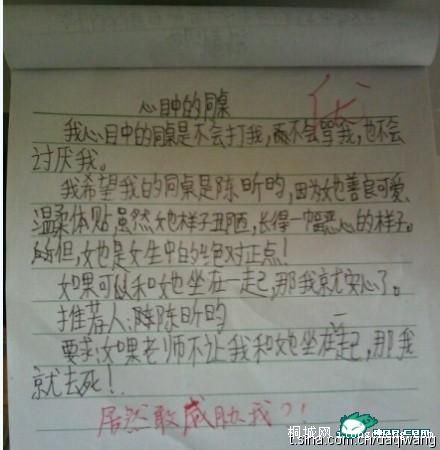 心目中的同桌
我心目中的同桌是不会打我,不会骂我,也不会
讨厌我。
我希望我的同桌是陈昕昀,因为她善良可爱、
温柔体贴,虽然她样子丑陋,长得一幅恶心的样子。
但,她是女生中的绝对正点!
如果可以和她坐在一起,那我就安心了。
推荐人:陈昕昀
要求:如果老师不让我和她坐在一起,那我
就去死!
居然敢威胁我?!
桐城网
t.sina.com.cn/daqiwang